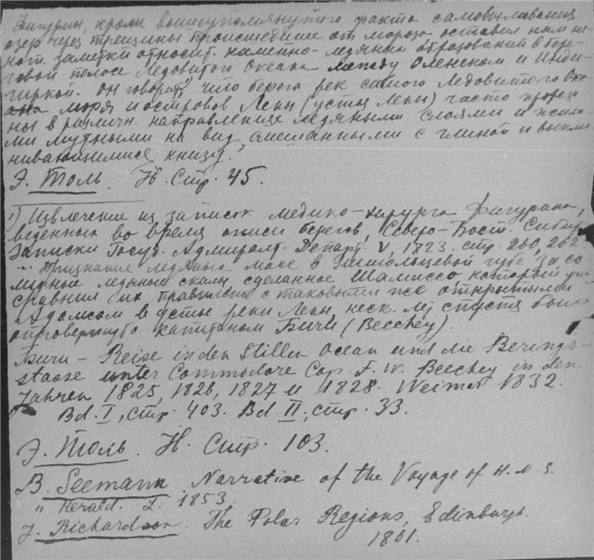 Фигурин, кроме вышеупомянутого факта самовыливания
озер через трещины происшедшие от мороза оставил нам
заметки относит. каменно-ледяных образований в бере-
говой полосе Ледовитого Океана между Оленеком и Инди-
гиркой. Он говорит, что берега рек самого Ледовитого Оке-
ана моря и островов Лены (устья Лены) часто прореза-
ны в различн. направлениях ледяными слоями и
мутными на вид, смешанными с глиной и выкли-
нивающимися книзу.
Э. Толь. Н. Стр. 45.
1) Извлечение из записок медико-хирурга Фигурина,
веденных во время описи берегов, Северо-Вост. Сибири
Записки Госуд. Адмиралт. Департ. V, 1823. стр. 260, 262
ледяных масс в Эшшольцевой губе за со
ледяные скалы сделанное Шамиссо который
сравнил их с таковыми же открытыми
Адамсом в устье реки Лены, неск. лет спустя было
опровергнуто капитаном Бичи (Beechey).
Бичи – Reise in den Stillen Ocean und die Berings-
stasse unter Commodore Cap. F. W. Beechey in den
Jahren 1825, 1826, 1827 и 1828. Weimar 1832.
Bd. I, стр. 403. Bd II, стр. 33.
Э. Толь. Н. Стр. 103.
B. Seemann Narrative of the Voyage of H. M. S.
"Herald. I. 1853.
J. Richardson. The Polar Regions, Edinburgh.
1861.